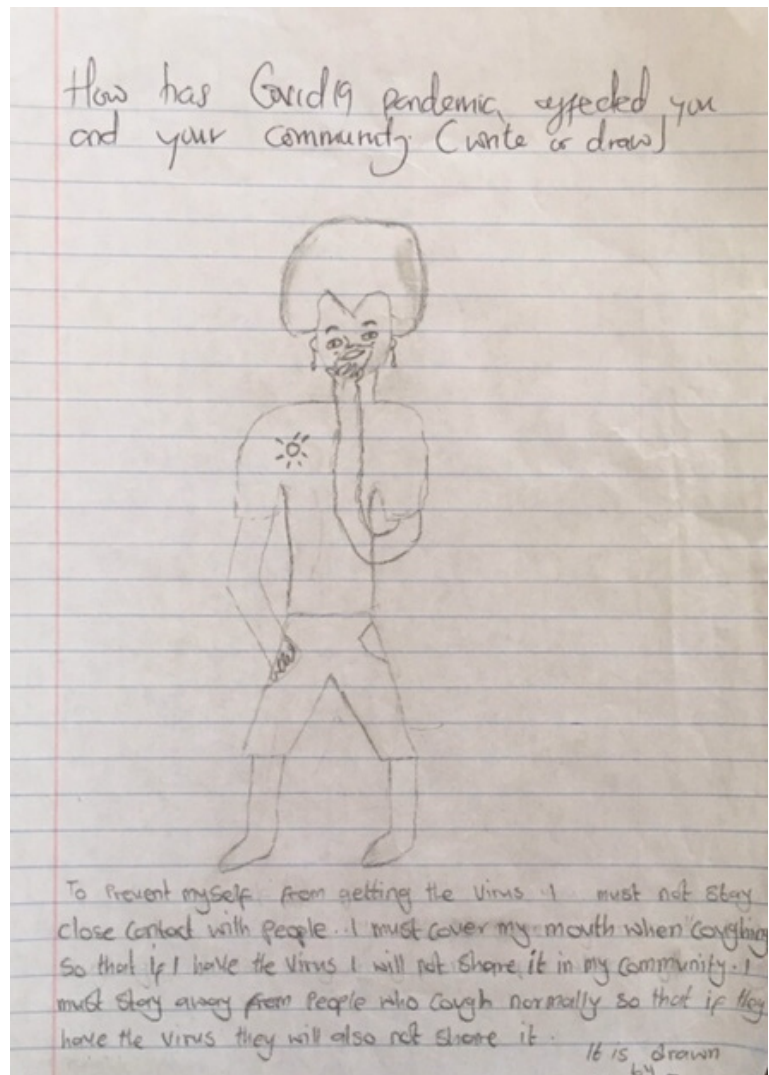 How has Covid19 pandemic, affected you
and your community. (write or draw)
To Prevent myself from getting the Virus I must not stay
close contact with People. I must cover my mouth when coughing
so that if I have the Virus I will not share it in my community. I
must stay away from People who cough normally so that if they
have the virus they will also not share it.
It is drawn
by